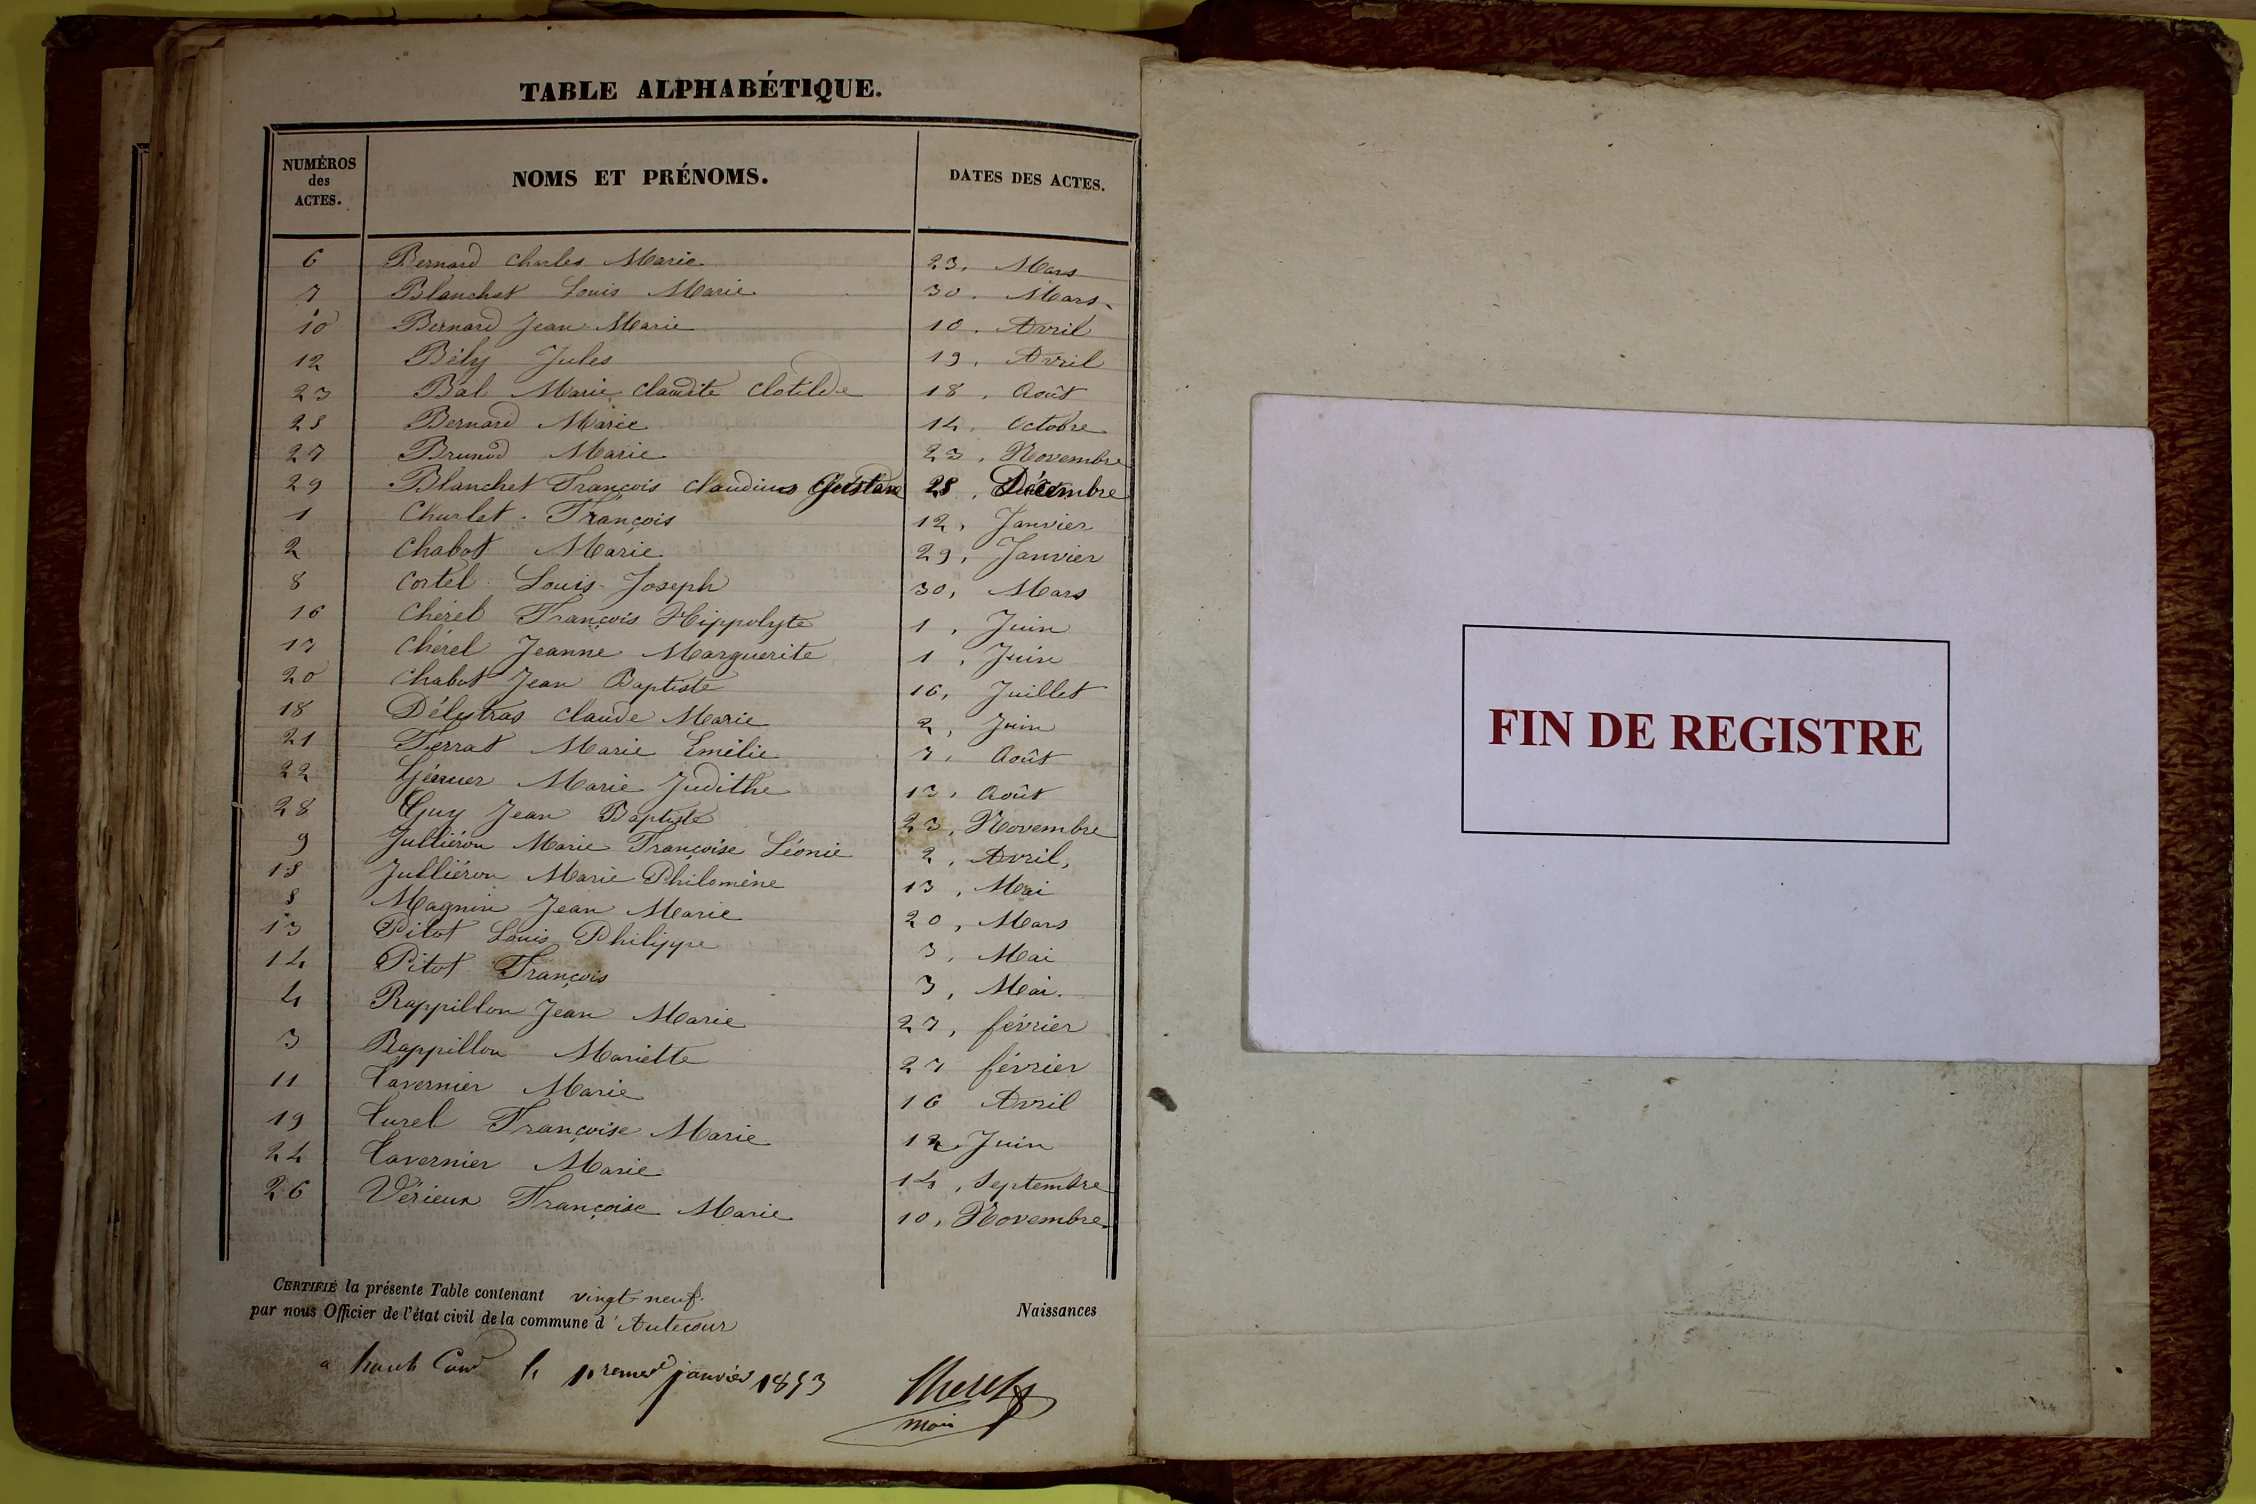 TABLE ALPHABÉTIQUE.
NUMÉROS des ACTES. NOMS ET PRÉNOMS. DATES DES ACTES.
6 Bernard Charles Marie 23, Mars
7 Blanchet Louis Marie 30, Mars
10 Bernard Jean Marie 10, Avril
12 Bély Jules 19, Avril
23 Bal Marie Claudite Clotilde 18, Août
25 Bernard Marie 14, Octobre
27 Brunod Marie 23, Novembre
29 Blanchet François Claudius Gustave 28, Décembre
1 Churlet François 12, Janvier
2 Chabot Marie 29, Janvier
8 Cortel Louis Joseph 30, Mars
16 Chérel François Hippolyte 1, Juin
17 Chérel Jeanne Marguerite 1, Juin
20 Chabot Jean Baptiste 16, Juillet
18 Délystras Claude Marie 2, Juin
21 Ferrat Marie Emélie 7, Août
22 Marie Judithe 13, Août
28 Guy Jean Baptiste 23, Novembre
9 Julliéron Marie Françoise Léonie 2, Avril,
15 Julliéron Marie Philomène 13, Mai
5 Magnin Jean Marie 20, Mars
13 Pitot Louis Philippe 3, Mai
14 Pitot François 3, Mai.
4 Rappillon Jean Marie 27, février
3 Rappillon Mariette 27 février
11 Tavernier Marie 16 Avril
19 Turel Françoise Marie 12, Juin
24 Tavernier Marie 14, Septembre
26 Vérieux Françoise Marie 10, Novembre
CERTIFIÉ la présente Table contenant vingt-neuf Naissances
par nous Officier de l'état civil de la commune d'Autecour
a le premier janvier 1853
FIN DE REGISTRE